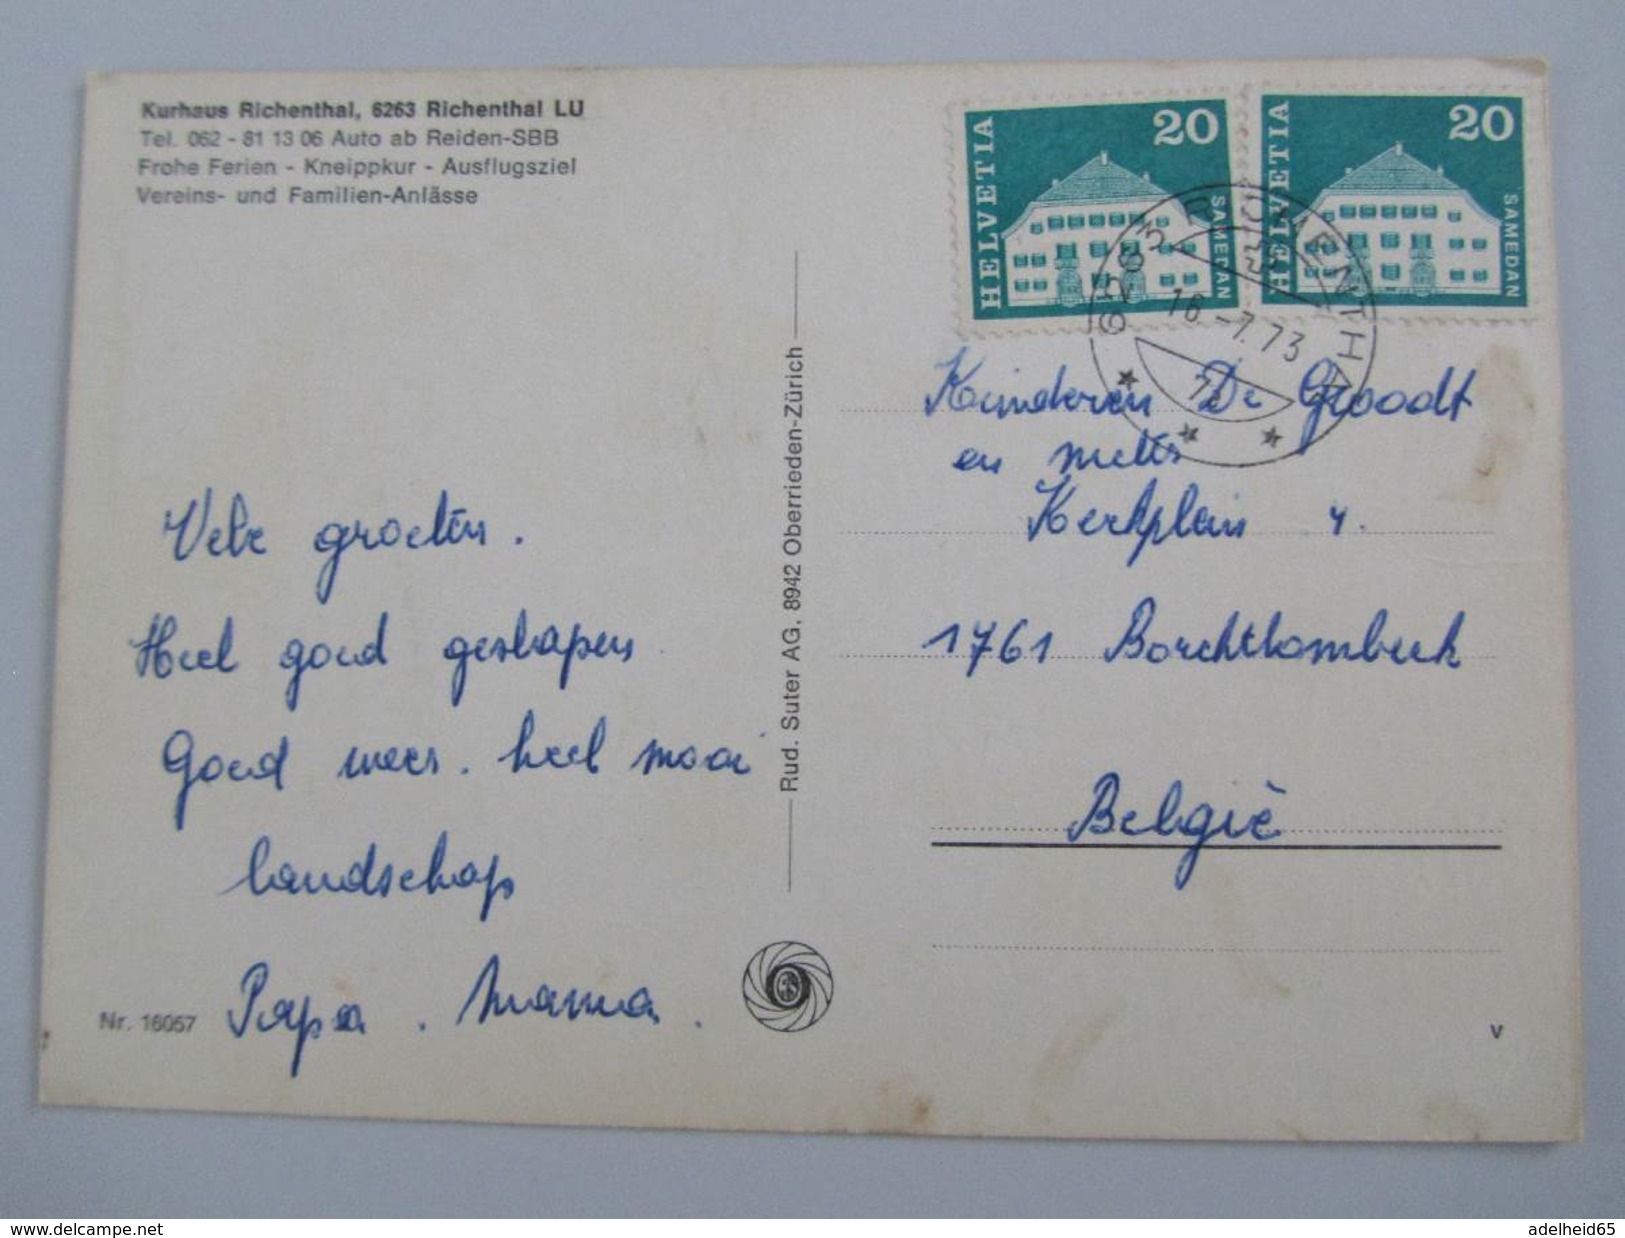 Kurhaus Richenthal, 6263 Richenthal LU
Tel. 062 - 81 13 06 Auto ab Reiden-SBB
Frohe Ferien - Kneippkur - Ausflugsziel
Vereins- und Familien-Anlässe
HELVETIA 20 SAMEDAN
HELVETIA 20 SAMEDAN
6263 RICHENTHAL
16.-7.73
Vele groeten.
Heel goed geslapen
Goed weer. heel mooi
landschap
Papa. Mama.
Nr. 16057
Rud. Suter AG, 8942 Oberrieden-Zürich
Kinderen De Groodt
en
Kerkplein 4.
1761 Borchtlombeek
België
V
www.delcampe.net
adelheid65